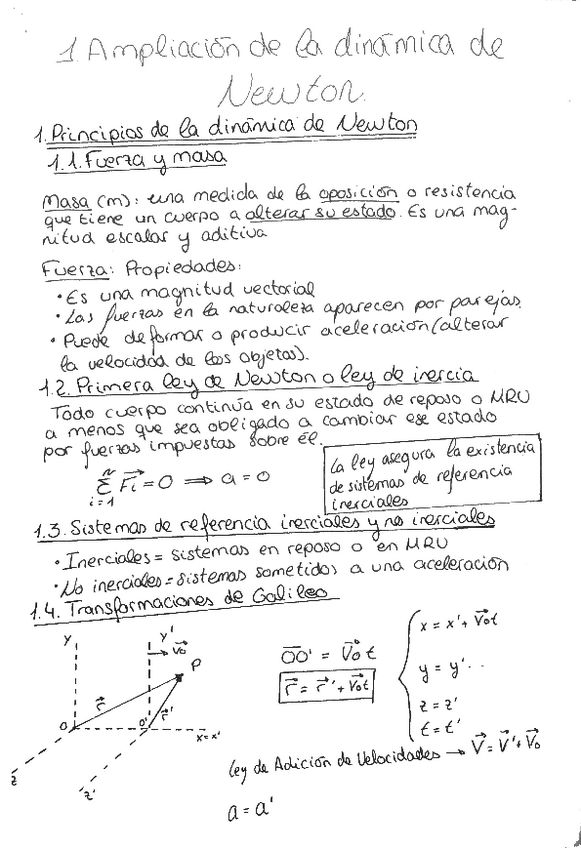 1. Ampliación de la dinámica de
Newton.
1. Principios de la dinámica de Newton
1.1. Fuerza y masa
Masa (m): una medida de la oposición o resistencia
que tiene un cuerpo a alterar su estado. Es una mag-
nitud escalar y aditiva
Fuerza: Propiedades:
· Es una magnitud vectorial
· Las fuerzas en la naturaleza aparecen por parejas.
· Puede deformar o producir aceleración (alterar
la velocidad de los objetos).
1.2. Primera ley de Newton o ley de inercia
Todo cuerpo continúa en su estado de reposo o MRU
a menos que sea obligado a cambiar ese estado
por fuerzas impuestas sobre él.
n
Σ F⃗i = 0 ⟹ a = 0
i=1
La ley asegura la existencia
de sistemas de referencia
inerciales
1.3. Sistemas de referencia inerciales y no inerciales
· Inerciales = sistemas en reposo o en MRU
· No inerciales = sistemas sometidos a una aceleración
1.4. Transformaciones de Galileo
y
y'
v⃗o
P
r⃗
r⃗'
O
O'
x=x'
z
z'
OO' = V⃗o t
r⃗ = r⃗' + V⃗ot
x = x' + V⃗ot
y = y' ..
z = z'
t = t'
Ley de Adición de Velocidades → V⃗ = V⃗' + V⃗o
a = a'